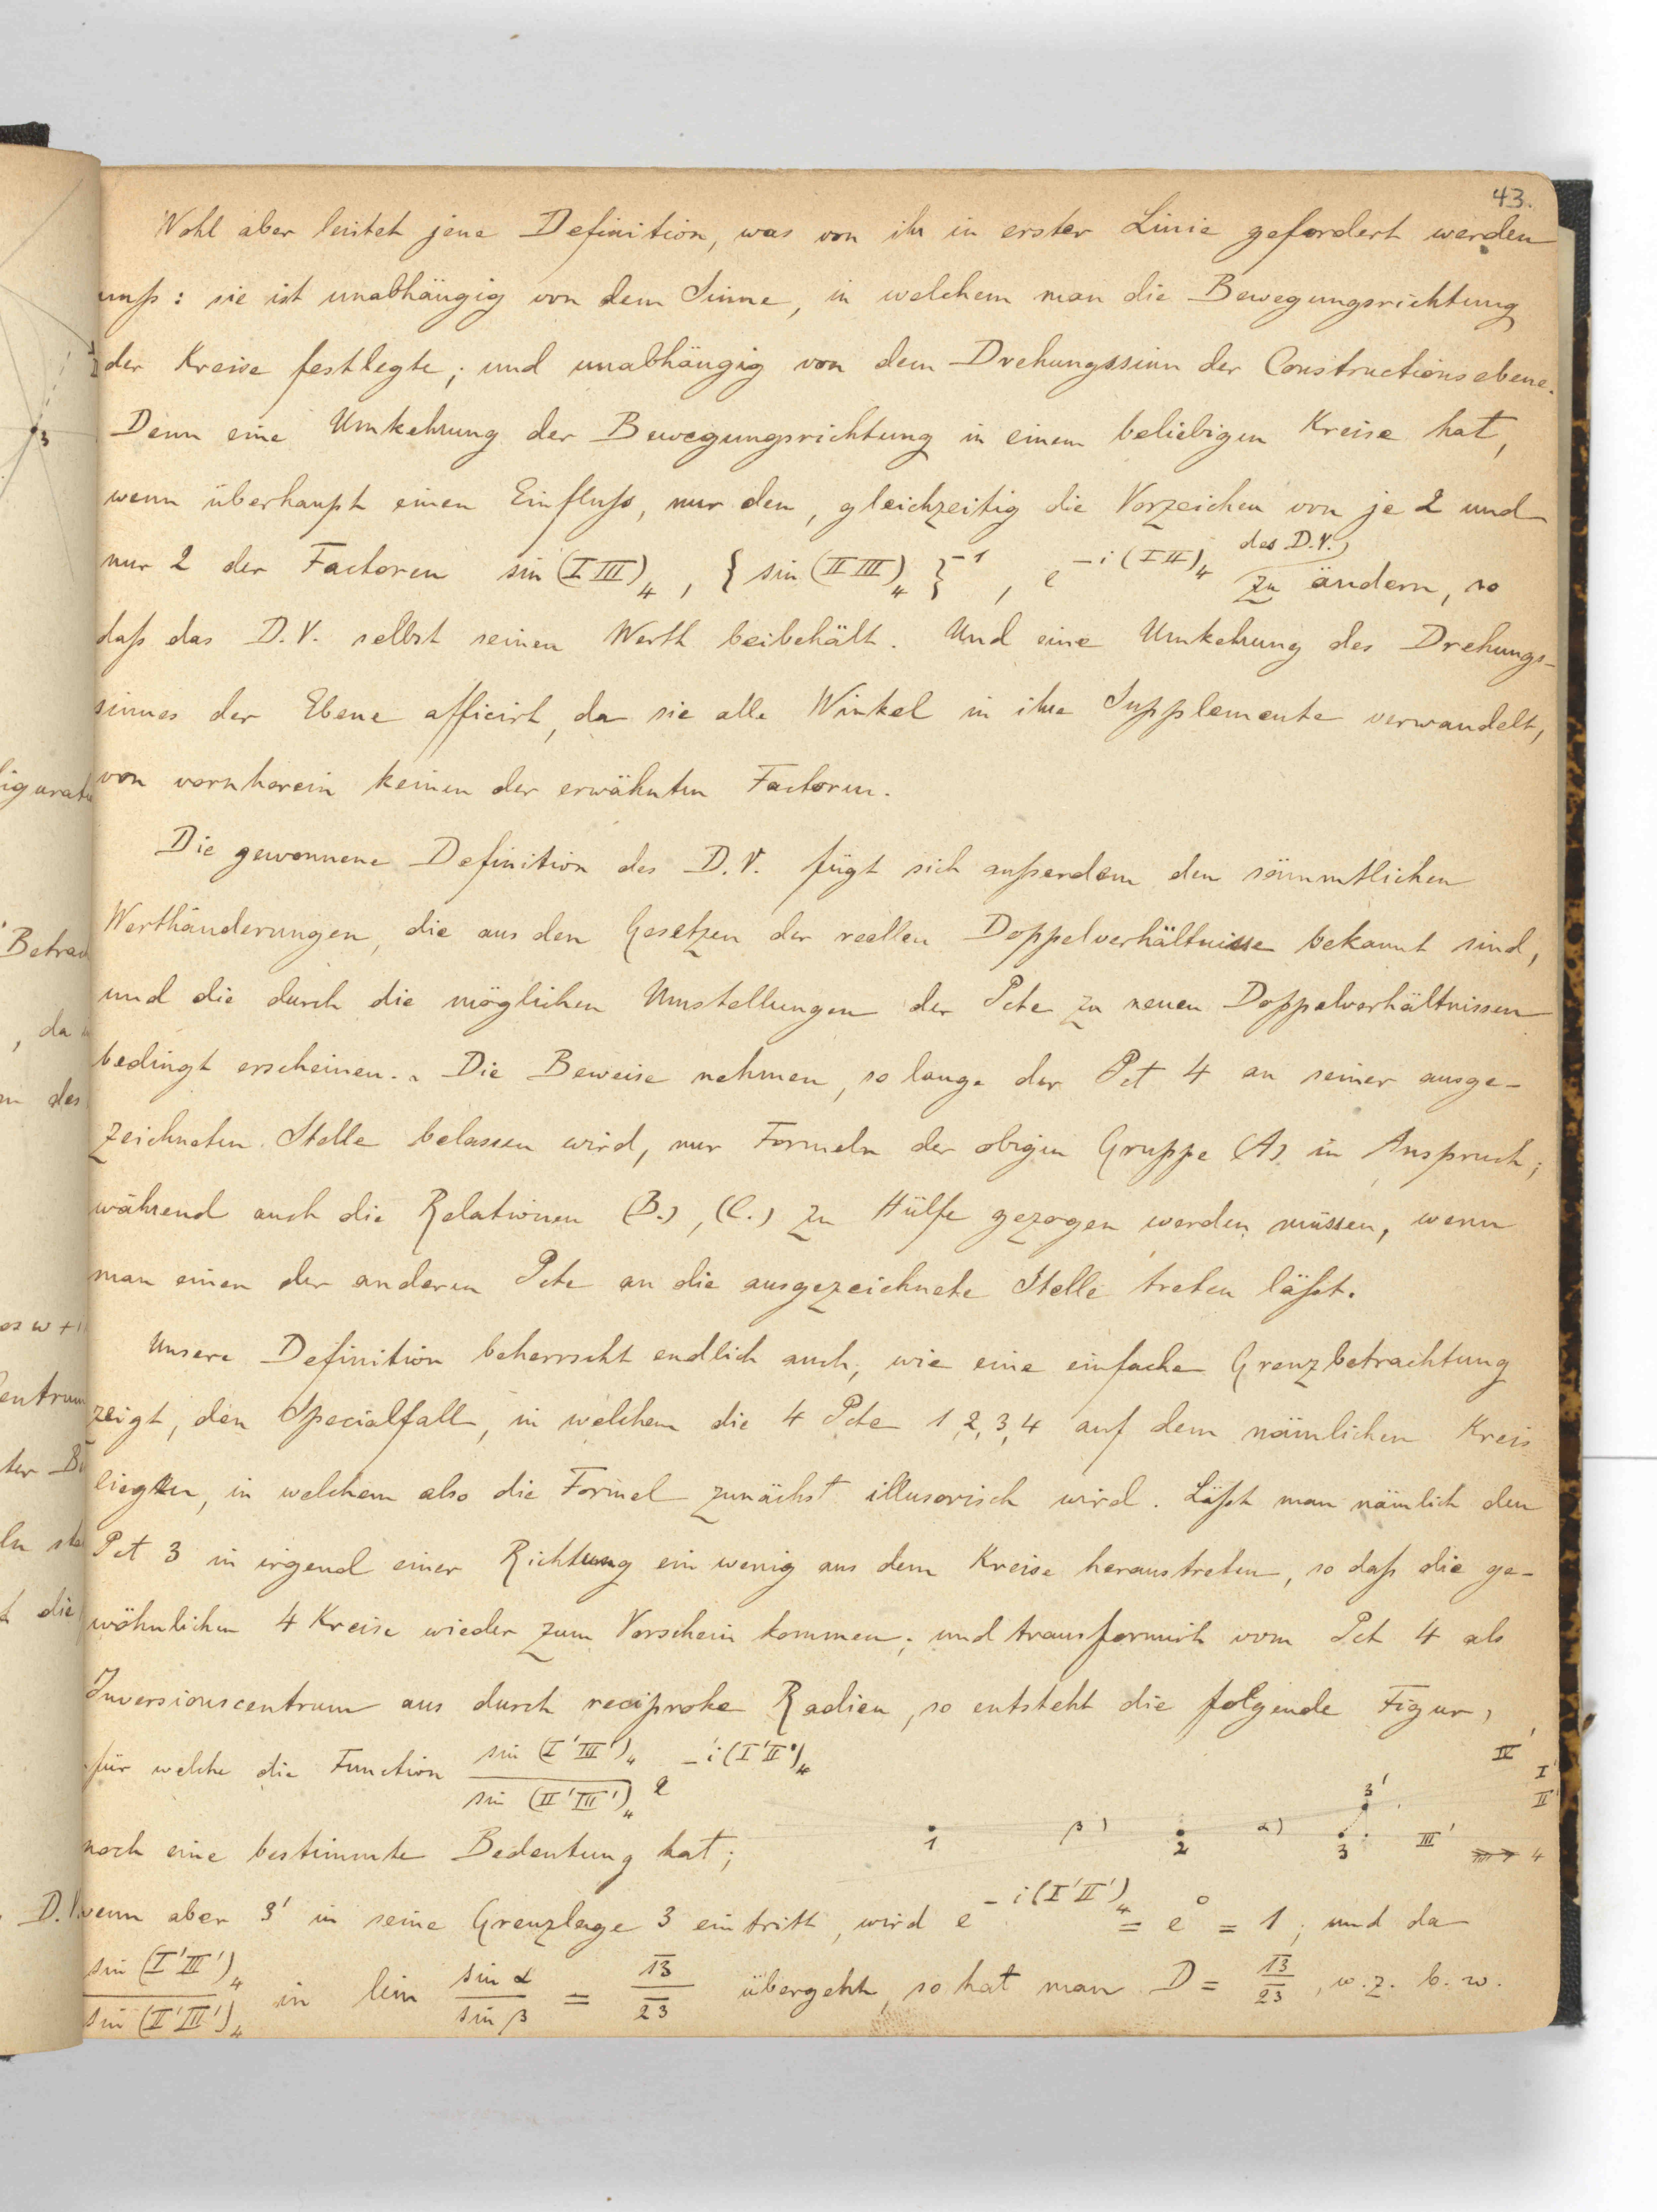 43.
Wohl aber leistet jene Definition, was von ihr in erster Linie gefordert werden
muß: sie ist unabhängig von dem Sinne, in welchem man die Bewegungsrichtung
der Kreise festlegte; und unabhängig von dem Drehungssinn der Constructionsebene.
Denn eine Umkehrung der Bewegungsrichtung in einem beliebigen Kreise hat,
wenn überhaupt einen Einfluß, nur den, gleichzeitig die Vorzeichen von je 2 und
nur 2 der Factoren sin (I III)₄, { sin (II III)₄ }⁻¹, e^{-i (I II)₄} des D.V. zu ändern, so
daß das D.V. selbst seinen Werth beibehält. Und eine Umkehrung des Drehungs-
sinnes der Ebene afficirt, da sie alle Winkel in ihre Supplemente verwandelt,
von vornherein keinen der erwähnten Factoren.
Die gewonnene Definition des D.V. fügt sich außerdem den sämmtlichen
Werthänderungen, die aus den Gesetzen der reellen Doppelverhältnisse bekannt sind,
und die durch die möglichen Umstellungen der Pcte zu neuen Doppelverhältnissen
bedingt erscheinen. Die Beweise nehmen, so lange der Pct 4 an seiner ausge-
zeichneten Stelle belassen wird, nur Formeln der obigen Gruppe (A) in Anspruch;
während auch die Relationen (B.), (C.) zu Hülfe gezogen werden müssen, wenn
man einen der anderen Pcte an die ausgezeichnete Stelle treten läßt.
Unsere Definition beherrscht endlich auch, wie eine einfache Grenzbetrachtung
zeigt, den Specialfall, in welchem die 4 Pcte 1, 2, 3, 4 auf dem nämlichen Kreis
liegen, in welchem also die Formel zunächst illusorisch wird. Läßt man nämlich den
Pct 3 in irgend einer Richtung ein wenig aus dem Kreise heraustreten, so daß die ge-
wöhnlichen 4 Kreise wieder zum Vorschein kommen; und transformirt vom Pct 4 als
Inversionscentrum aus durch reciproke Radien, so entsteht die folgende Figur,
für welche die Function sin (I'III')₄ / sin (II'III')₄ e^{-i (I'II')₄}
IV'
I'
II'
3'
1
β)
2
α)
3
III'
4
noch eine bestimmte Bedeutung hat;
wenn aber 3' in seine Grenzlage 3 eintritt, wird e^{-i (I'II')₄} = e⁰ = 1; und da
sin (I'III')₄ / sin (II'III')₄ in lim sin α / sin β = 13 / 23 übergeht, so hat man D = 13 / 23, w. z. b. w.